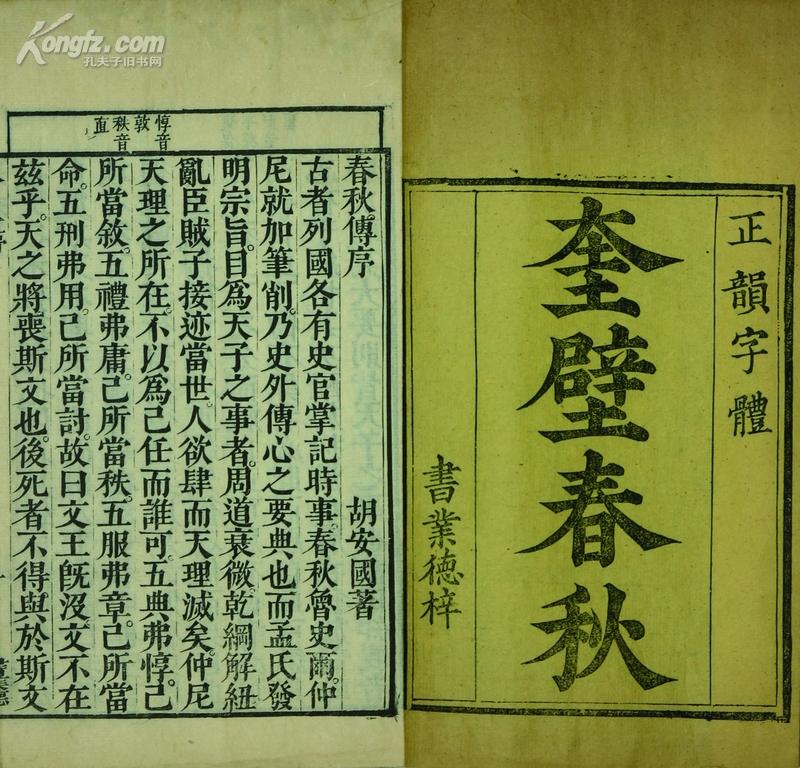 Kongfz.com
孔夫子旧书网
正韻字體
奎壁春秋
書業德梓
惇音
敦
秩音
直
春秋傳序
胡安國著
古者列國各有史官掌記時事。春秋魯史爾。仲
尼就加筆削。乃史外傳心之要典也。而孟氏發
明宗旨。目爲天子之事者。周道衰微。乾綱解紐
亂臣賊子接迹當世。人欲肆而天理滅矣。仲尼
天理之所在。不以爲己任而誰可。五典弗惇。己
所當敘。五禮弗庸。己所當秩。五服弗章。己所當
命。五刑弗用。己所當討。故曰文王旣沒。文不在
茲乎。天之將喪斯文也。後死者不得與於斯文